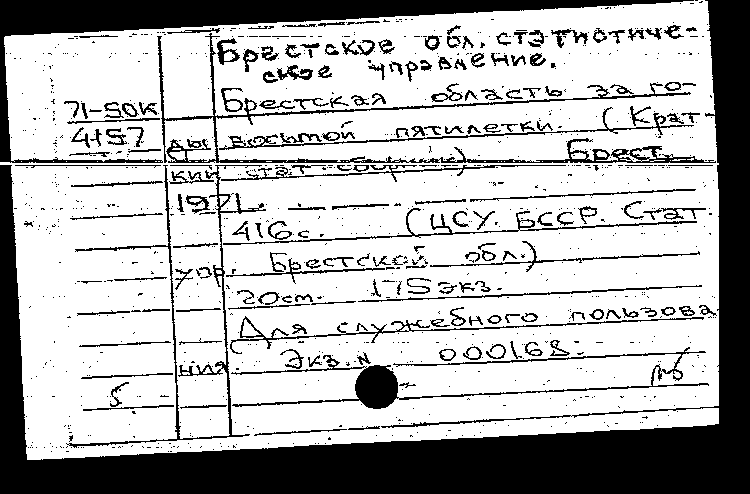 Брестское обл. статистиче-
ское управление.
71-SOK Брестская область за го-
4157 ды восьмой пятилетки. (Крат-
кий стат сборник) Брест.
1971.
416с. (ЦСУ. БССР. Стат.
упр. Брестской обл.)
20см. 175экз.
Для служебного пользова
ния. Экз. N 000168.
5.